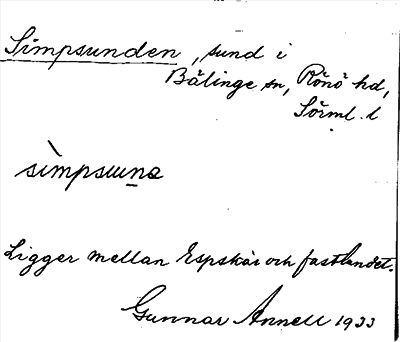 Simpsunden, sund i
Bälinge sn, Rönö hd,
Sörml. l
sìmpsuna
Ligger mellan Espskär och fastlandet.
Gunnar Annell 1933